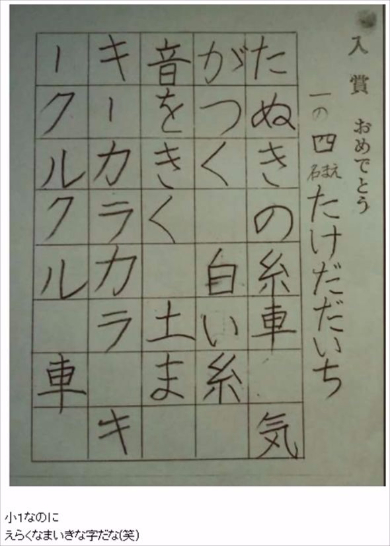 入賞 おめでとう
一の四 名まえ たけだだいち
たぬきの糸車 気
がつく 白い糸
音をきく 土ま
キーカラカラ キ
ークルクル 車
小1なのに
えらくなまいきな字だな(笑)